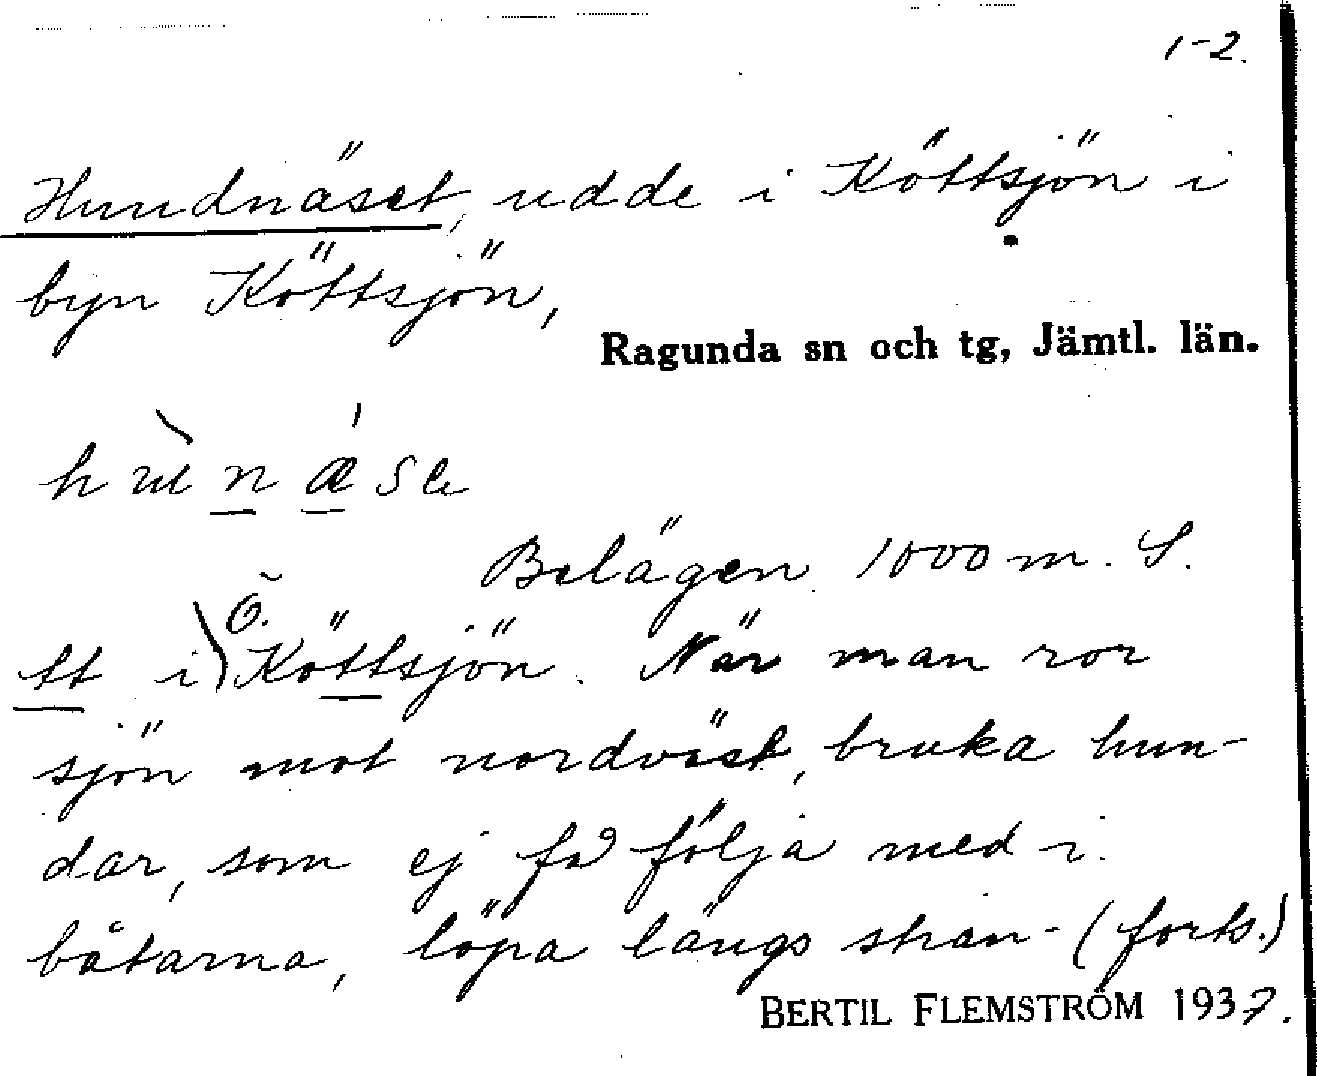 1-2.
Hundnäset, udde i Köttsjön i
byn Köttsjön,
Ragunda sn och tg, Jämtl. län.
Belägen 1000 m. S.
tt i Ö. Köttsjön. När man ror
sjön mot nordväst, bruka hun-
dar, som ej få följa med i
båtarna, löpa längs stran- (forts.)
BERTIL FLEMSTRÖM 1937.